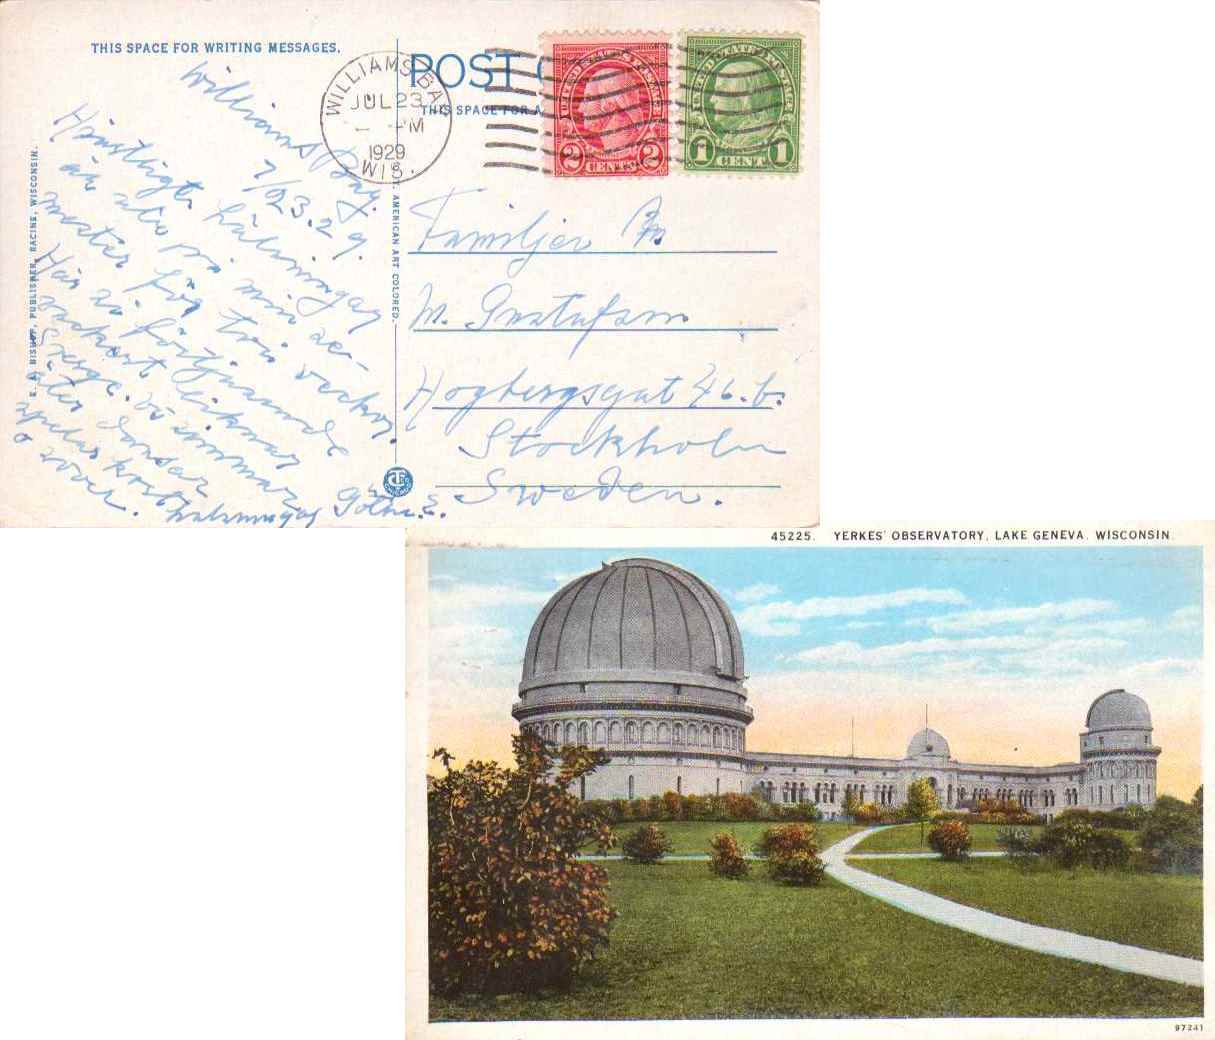 THIS SPACE FOR WRITING MESSAGES.
POST
THIS SPACE FOR A
WILLIAMS BAY
JUL 23
M
1929
WIS.
UNITED STATES POSTAGE
2 CENTS 2
UNITED STATES POSTAGE
1 CENT 1
E. A. BISHOP, PUBLISHER, RACINE, WISCONSIN.
AMERICAN ART COLORED.
Williams Bay.
7/23.29.
Hjärtliga hälsningar
är ute på min se-
mester för tre veckor.
Här är förtjusande
vackert liknar
Sverge. Vi simmar
äter dansar
spelar kort
o rover.
hälsningar Göthe E.
Familjen
W. Gustafson
Hogbergsgat 46. b.
Stockholm
Sweden.
45225. YERKES' OBSERVATORY, LAKE GENEVA, WISCONSIN
97241